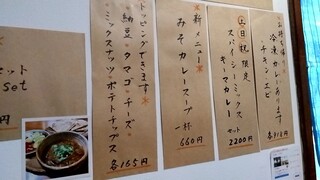 お持ち帰り
冷凍カレーあります
チキン・エビ
各912円
土日祝限定
スパイシーミックス
キーマカレー
セット
2200円
新メニュー
みそカレースープ
一杯
660円
トッピングできます
納豆・タマゴ・チーズ・
ミックスナッツ・ポテトチップス
各165円
セット
set
円